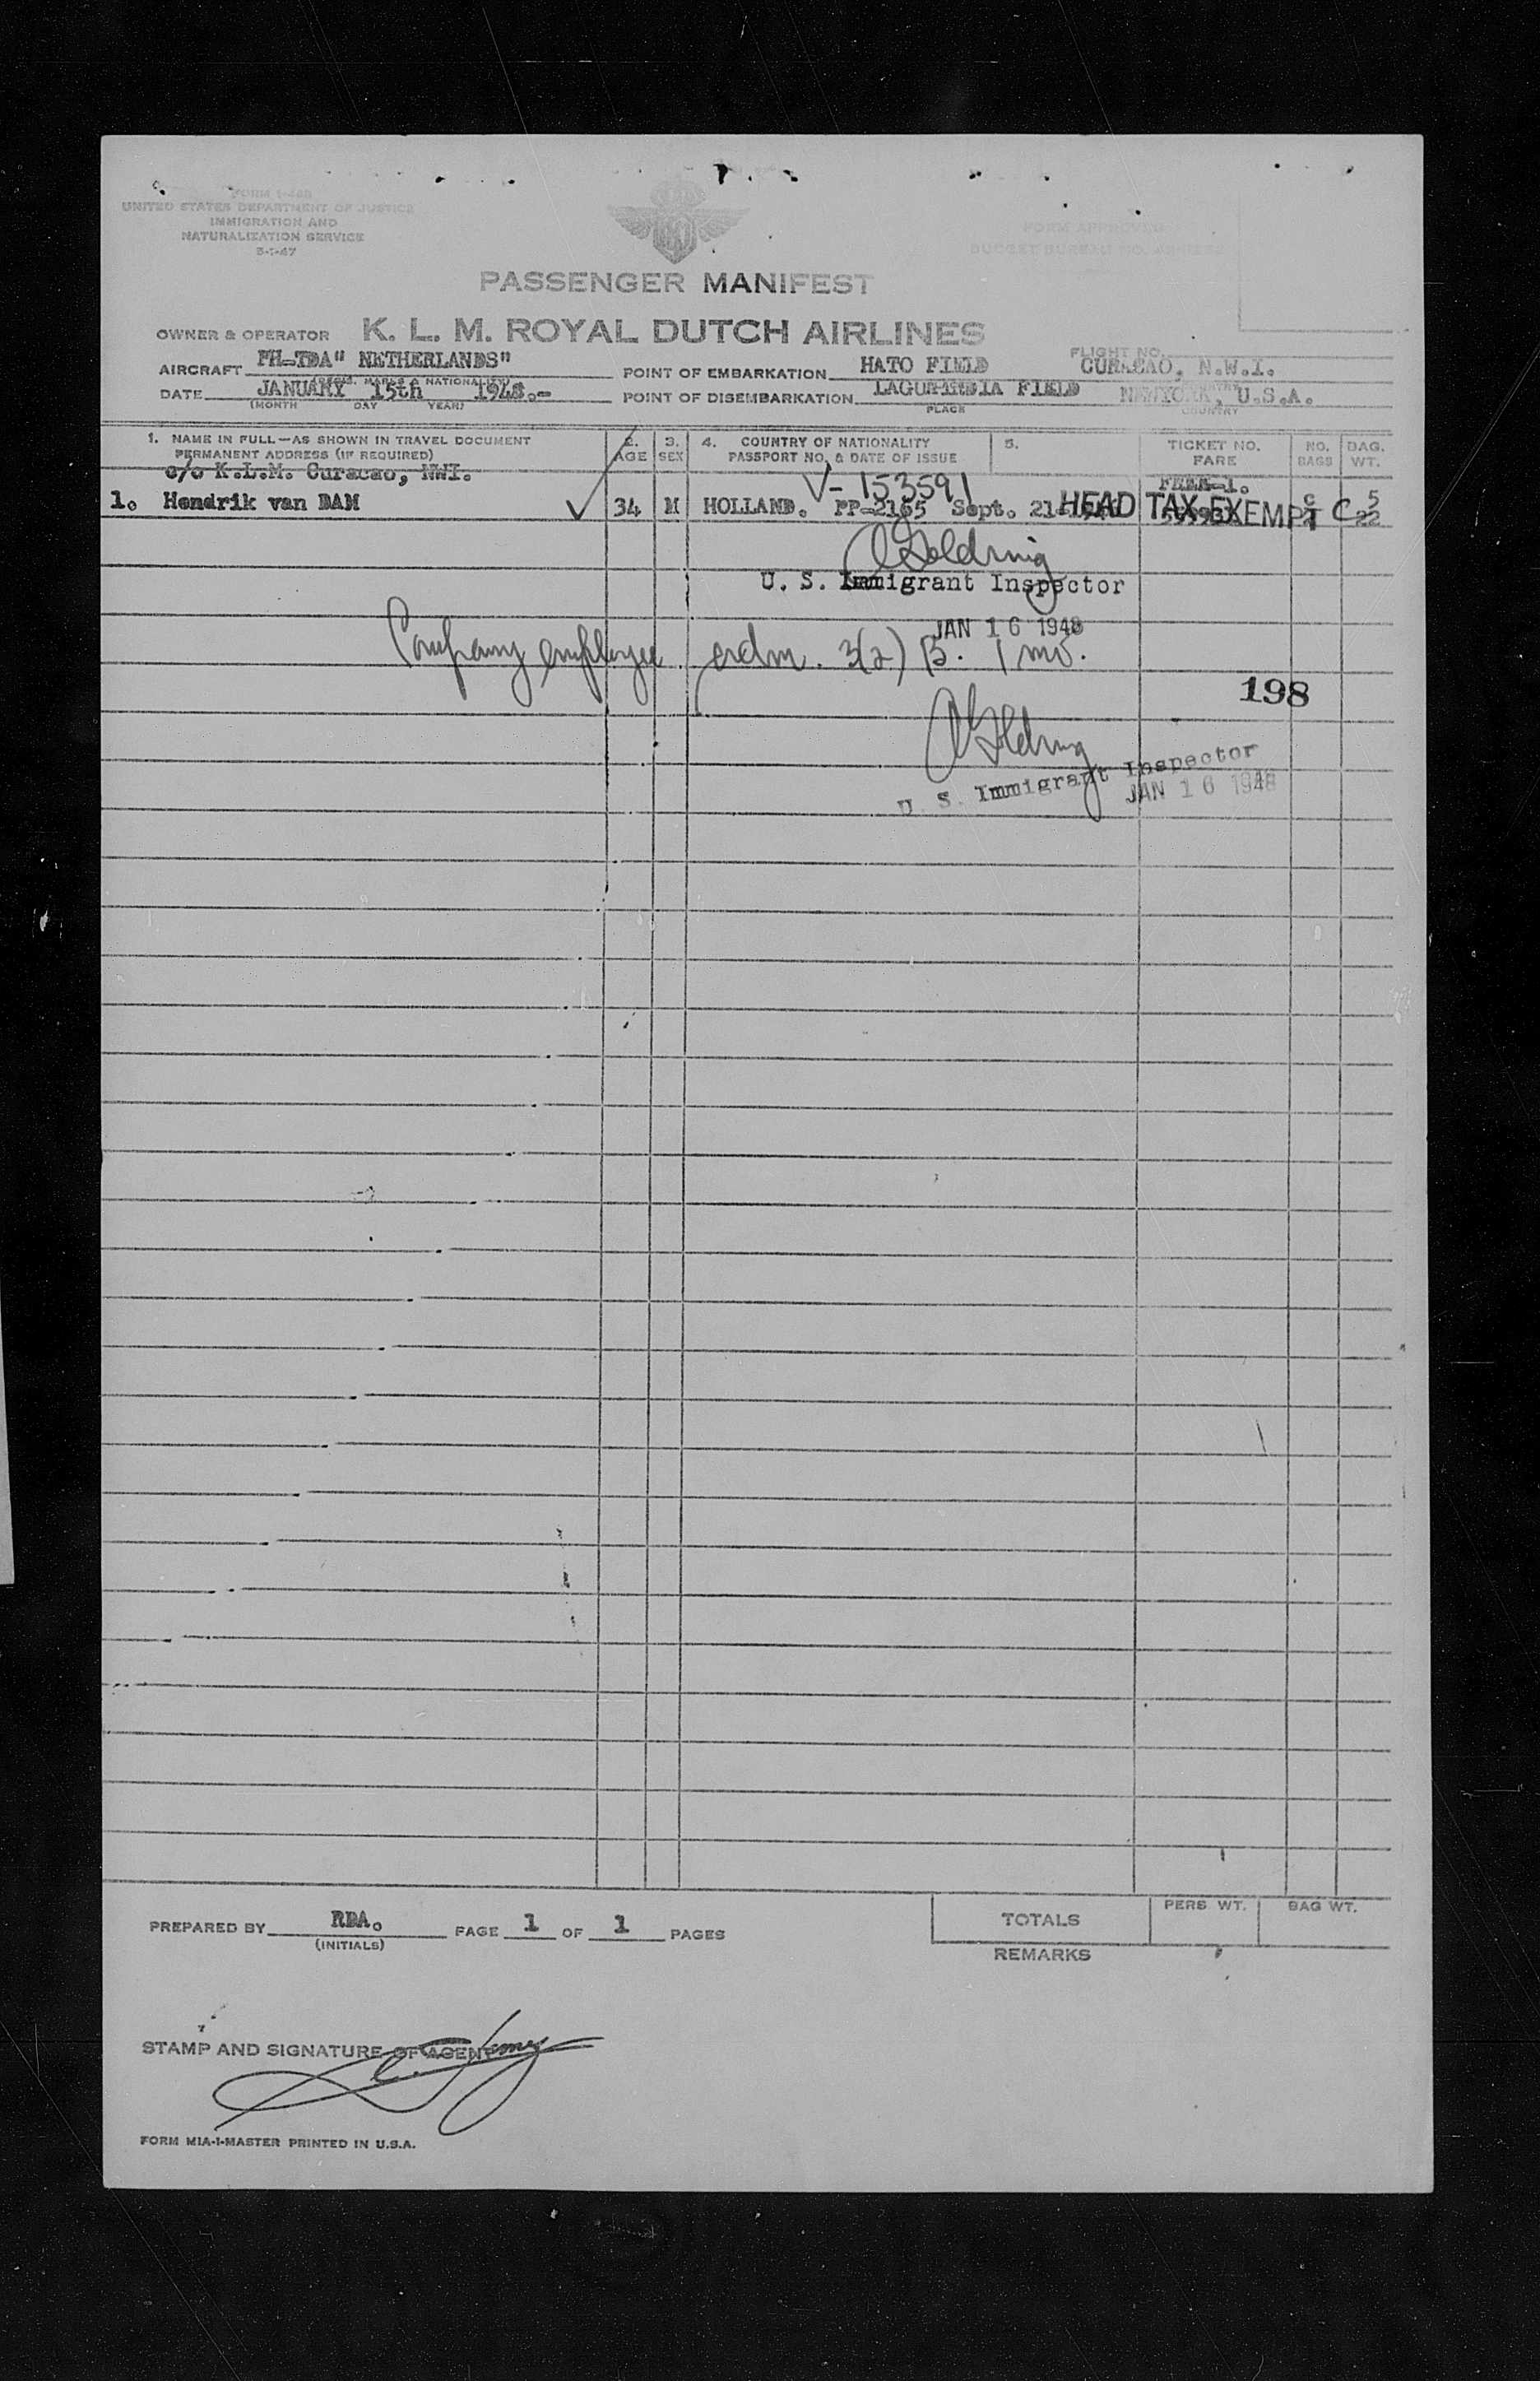 FORM I-448
UNITED STATES DEPARTMENT OF JUSTICE
IMMIGRATION AND
NATURALIZATION SERVICE
FORM APPROVED
BUDGET BUREAU NO.
PASSENGER MANIFEST
OWNER & OPERATOR K. L. M. ROYAL DUTCH AIRLINES
FLIGHT NO.
AIRCRAFT PH-TDA" NETHERLANDS" POINT OF EMBARKATION HATO FIELD CURACAO, N.W.I.
DATE JANUARY 15th 1948.- POINT OF DISEMBARKATION LAGUARDIA FIELD NEWYORK, U.S.A.
(MONTH DAY YEAR) PLACE COUNTRY
1. NAME IN FULL—AS SHOWN IN TRAVEL DOCUMENT 2. 3. 4. COUNTRY OF NATIONALITY 5. TICKET NO. NO. BAG.
PERMANENT ADDRESS (IF REQUIRED) AGE SEX PASSPORT NO. & DATE OF ISSUE FARE BAGS WT.
c/o K.L.M. Curacao, NWI.
V-153591
1. Hendrik van DAM 34 M HOLLAND. PP-2165 Sept. 21 HEAD TAX EXEMPT C 5 22
U. S. Immigrant Inspector
JAN 16 1948
Company employee adm. 3(2) B. 1 mo.
198
U. S. Immigrant Inspector
JAN 16 1948
PREPARED BY RDA. PAGE 1 OF 1 PAGES
(INITIALS)
TOTALS PERS WT. BAG WT.
REMARKS
STAMP AND SIGNATURE OF AGENT
FORM MIA-1-MASTER PRINTED IN U.S.A.